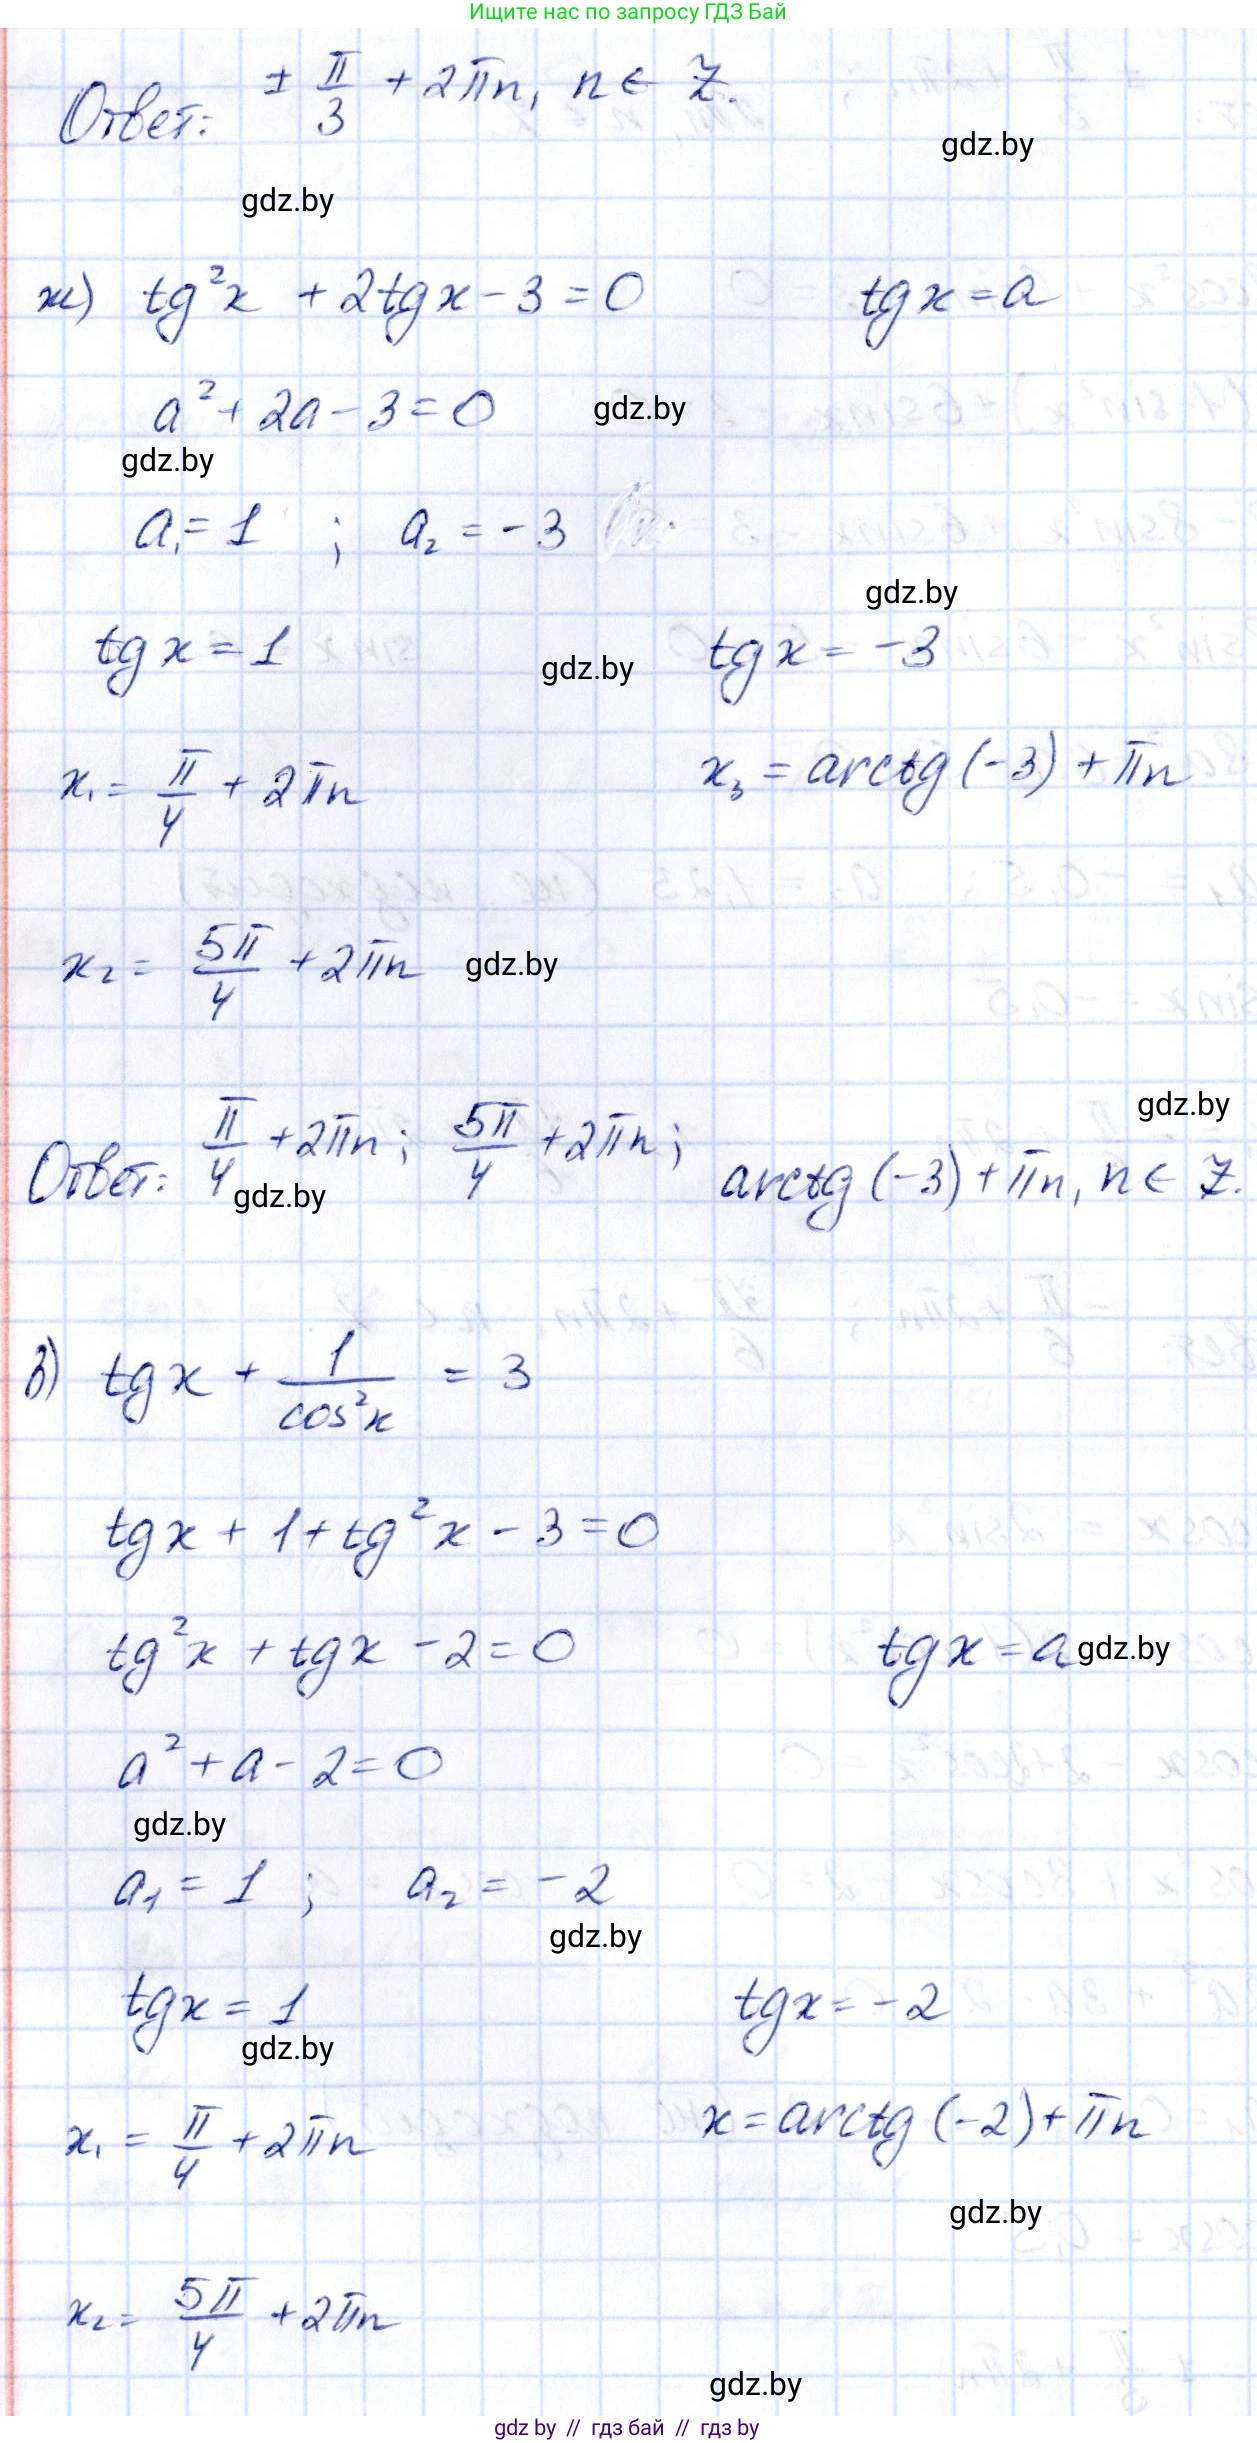 Ищите нас по запросу ГДЗ Бай
Ответ: ± π/3 + 2πn, n ∈ Z.
gdz.by
gdz.by
ж) tg²x + 2tgx - 3 = 0 tgx = a
a² + 2a - 3 = 0 gdz.by
gdz.by
a₁ = 1 ; a₂ = -3
gdz.by
tgx = 1 gdz.by tgx = -3
x₁ = π/4 + 2πn x₃ = arctg(-3) + πn
x₂ = 5π/4 + 2πn gdz.by
gdz.by
Ответ: π/4 + 2πn; 5π/4 + 2πn; arctg(-3) + πn, n ∈ Z.
gdz.by
з) tgx + 1/cos²x = 3
tgx + 1 + tg²x - 3 = 0
tg²x + tgx - 2 = 0 tgx = a gdz.by
a² + a - 2 = 0
gdz.by
a₁ = 1 ; a₂ = -2
gdz.by
tgx = 1 tgx = -2
gdz.by
x₁ = π/4 + 2πn x = arctg(-2) + πn
gdz.by
x₂ = 5π/4 + 2πn
gdz.by
gdz by // гдз бай // гдз by